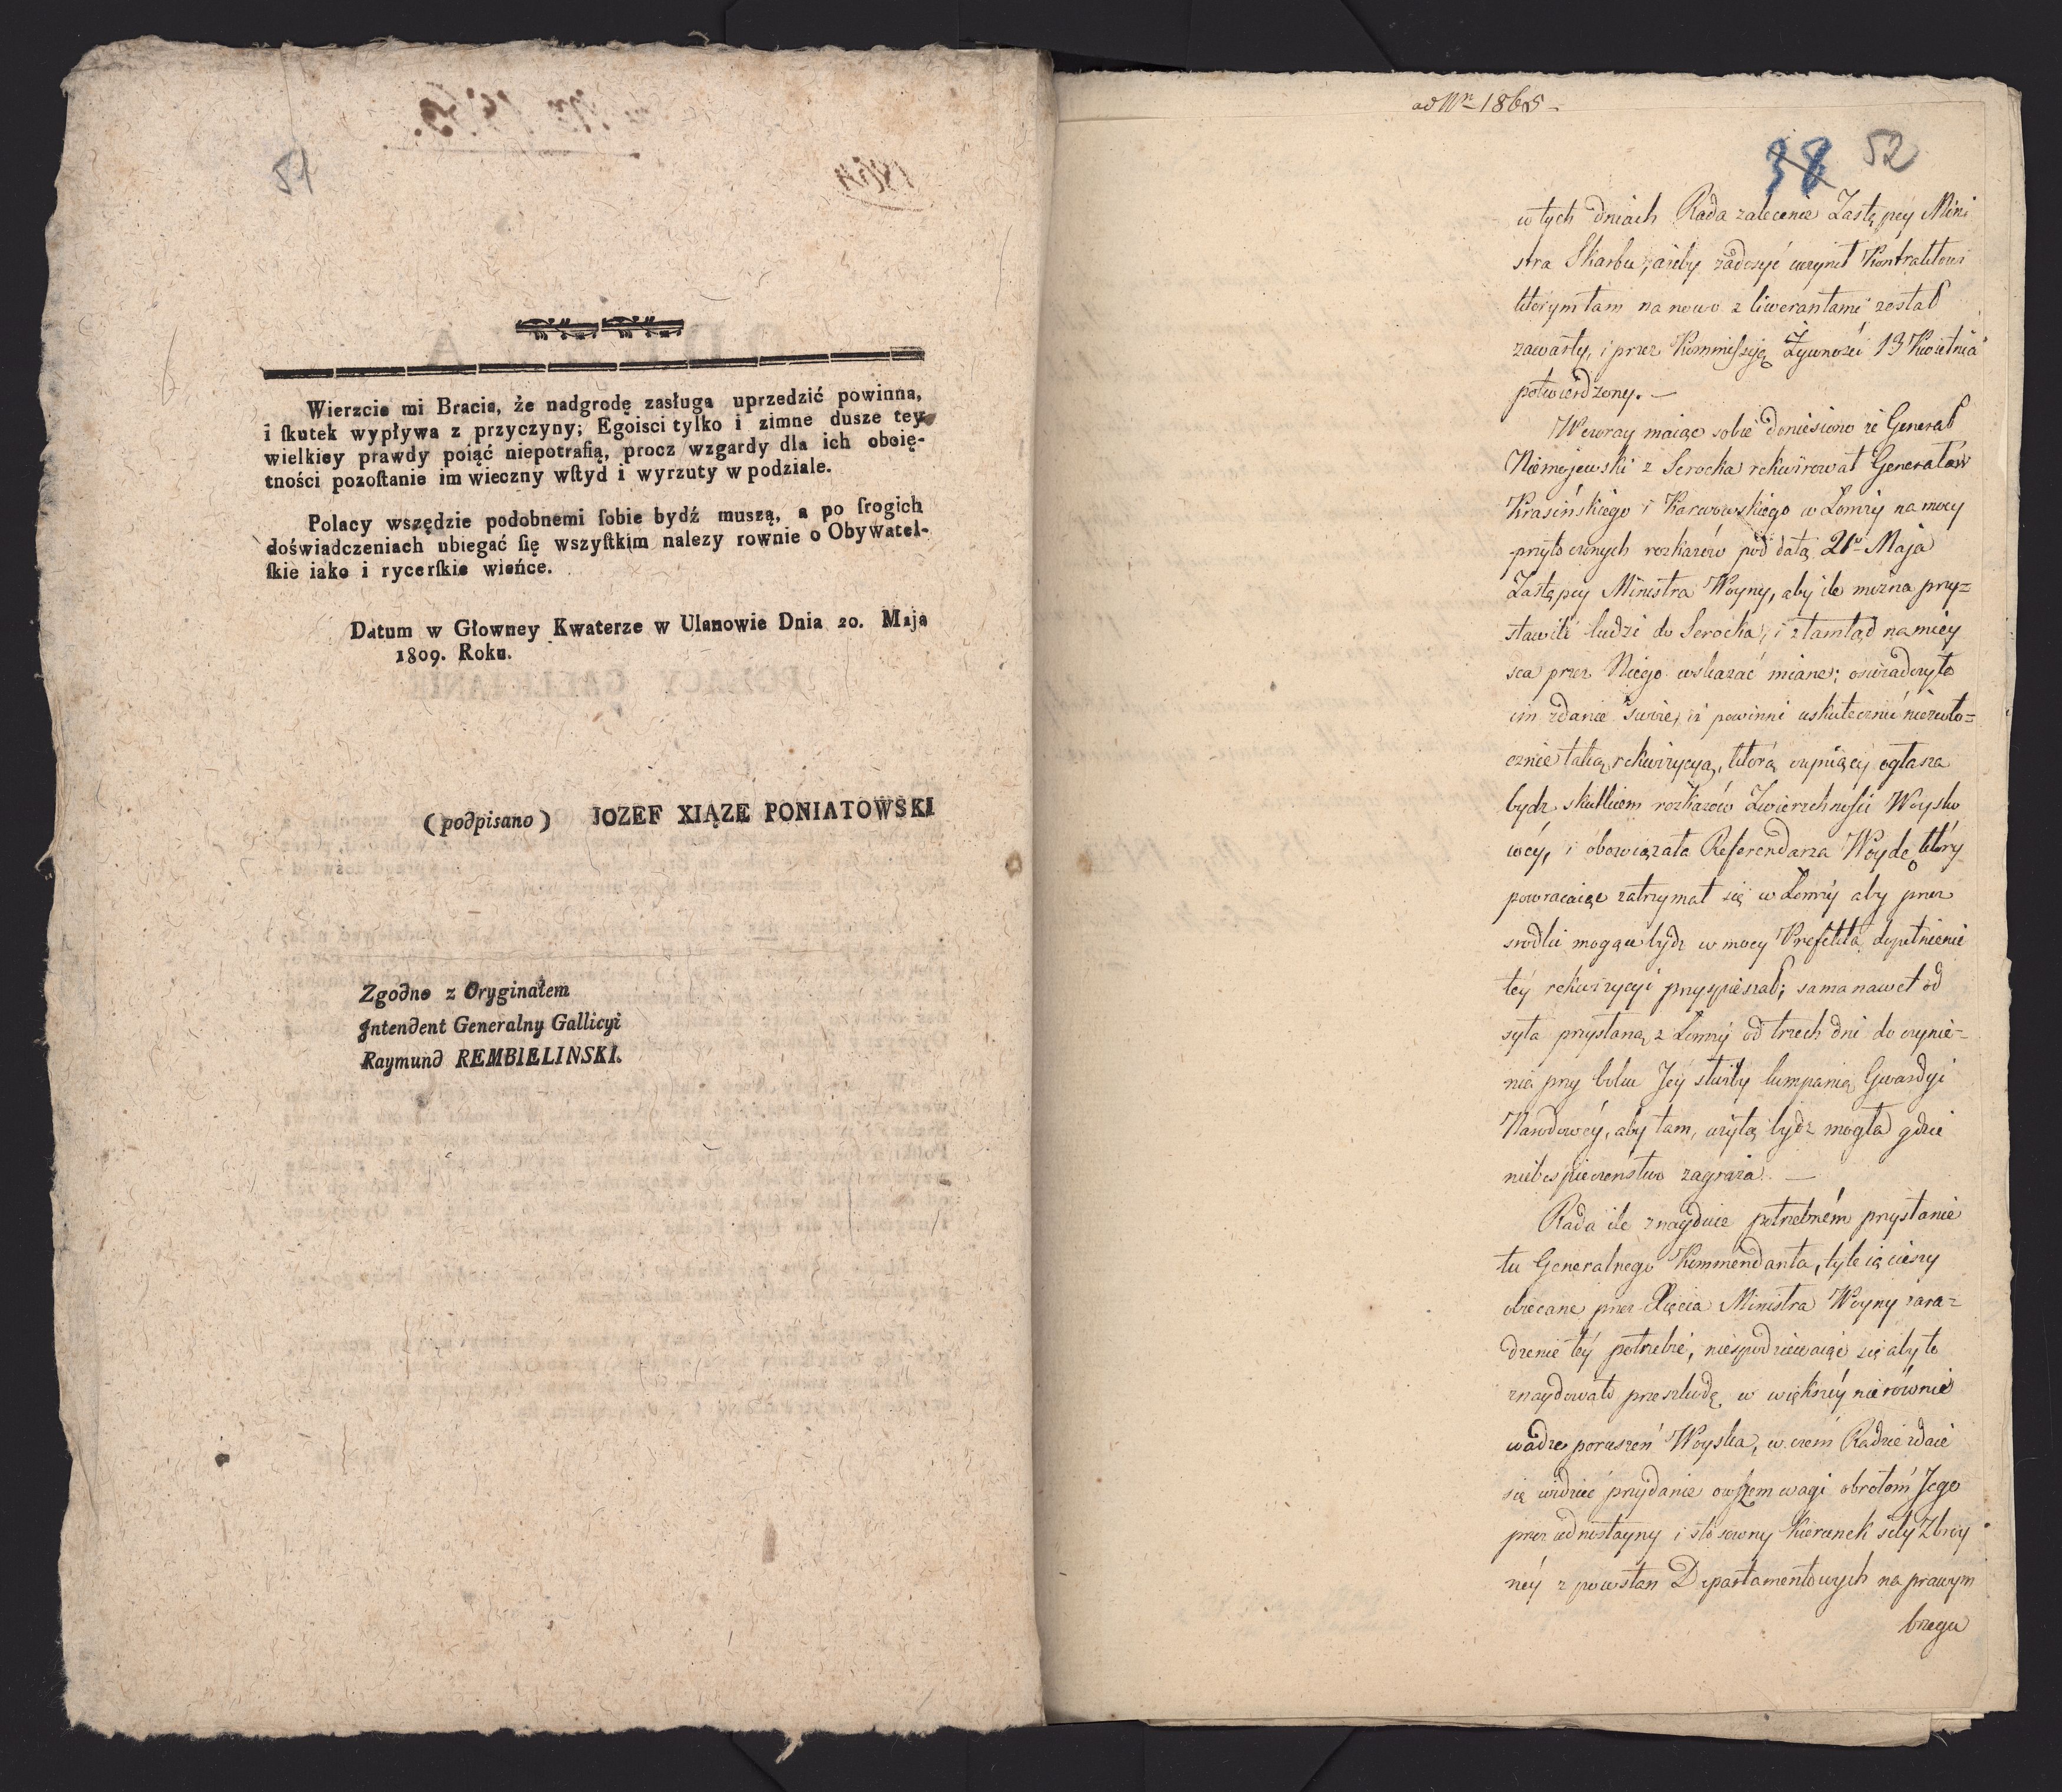 51
Wierzcie mi Bracia, że nadgrodę zasługa uprzedzić powinna,
i ſkutek wypływa z przyczyny; Egoisci tylko i zimne dusze tey
wielkiey prawdy poiąć niepotrafią, procz wzgardy dla ich oboię-
tności pozoſtanie im wieczny wſtyd i wyrzuty w podziale.
Polacy wszędzie podobnemi ſobie bydź muszą, a po ſrogich
doświadczeniach ubiegać ſię wszyſtkim nalezy rownie o Obywatel-
ſkie iako i rycerſkie wieńce.
Datum w Głowney Kwaterze w Ulanowie Dnia 20. Maja
1809. Roku.
(podpisano) JOZEF XIĄZE PONIATOWSKI
Zgodno z Oryginałem
Jntendent Generalny Gallicyi
Raymund REMBIELINSKI.
ad Nr 1865
38 52
w tych dniach Rada zalecenie Zastępcy Mini
stra Skarbu, ażeby zadosyć uczynił Kontraktowi
którym tam na nowo z liwerantami został
zawarty, i przez Kommissyją Żywności 13 Kwietnia
potwierdzony. —
Wczoray maiąc sobie doniesiono że Generał
Niemojewski z Serocka rekwirował Generałów
Krasińskiego i Karwowskiego w Łomży na mocy
przytoczonych rozkazów pod datą 21º Maja
Zastępcy Ministra Woyny, aby ile można przy=
stawili ludzi do Serocka, i ztamtąd na miey
sca przez Niego wskazać miane; oświadczyła
im zdanie swoie, iż powinni uskutecznić niezwło=
cznie taką rekwizycyą, którą czyniący ogłasza
bydz skutkiem rozkazów Zwierzchności Woysko
wéy, i obowiązała Referendarza Woydę który
powracaiąc zatrzymał się w Łomży aby przez
srodki mogące bydz w mocy Prefekta dopełnienie
téy rekwizycyi przyspieszał; sama nawet od
syła przysłaną z Łomży od trzech dni do czynie=
nia przy boku Jéy służby kumpanią Gwardyi
Narodowéy, aby tam, użytą bydz mogła gdzie
niebespieczenstwo zagraża. —
Rada ile znayduie potrzebném przysłanie
tu Generalnego Kommendanta, tyle ią cieszy
obiecane przez Xięcia Ministra Woyny zara=
dzenie téy potrzebie, niespodziewaiąc się aby to
znaydowało przeszkodę w większéy nierównie
wadze poruszeń Woyska, w czém Radzie zdaie
się widzieć przydanie owszem wagi obrotóm Jego
przez iednostayny i stosowny kierunek siły Zbroy
néy z powstań Departamentowych na prawym
brzegu